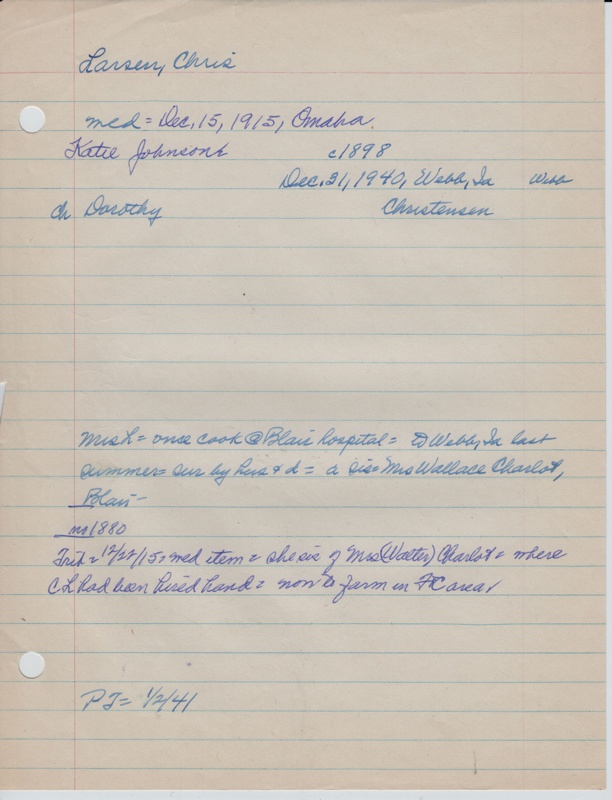 Larsen, Chris
med = Dec. 15, 1915, Omaha.
Katie Johnson c1898
Dec. 31, 1940, Webb, Ia Webb
ch Dorothy Christensen
Mrs L = once cook @ Blair hospital = to Webb, Ia last
summer = sur by hus + d = a sis = Mrs Wallace Charlot,
Blair -
no 1880
Trib = 12/22/15 = med item = she sis of Mrs (Walter) Charlot = where
C L had been hired hand = now to farm in FC area
PT = 1/2/41